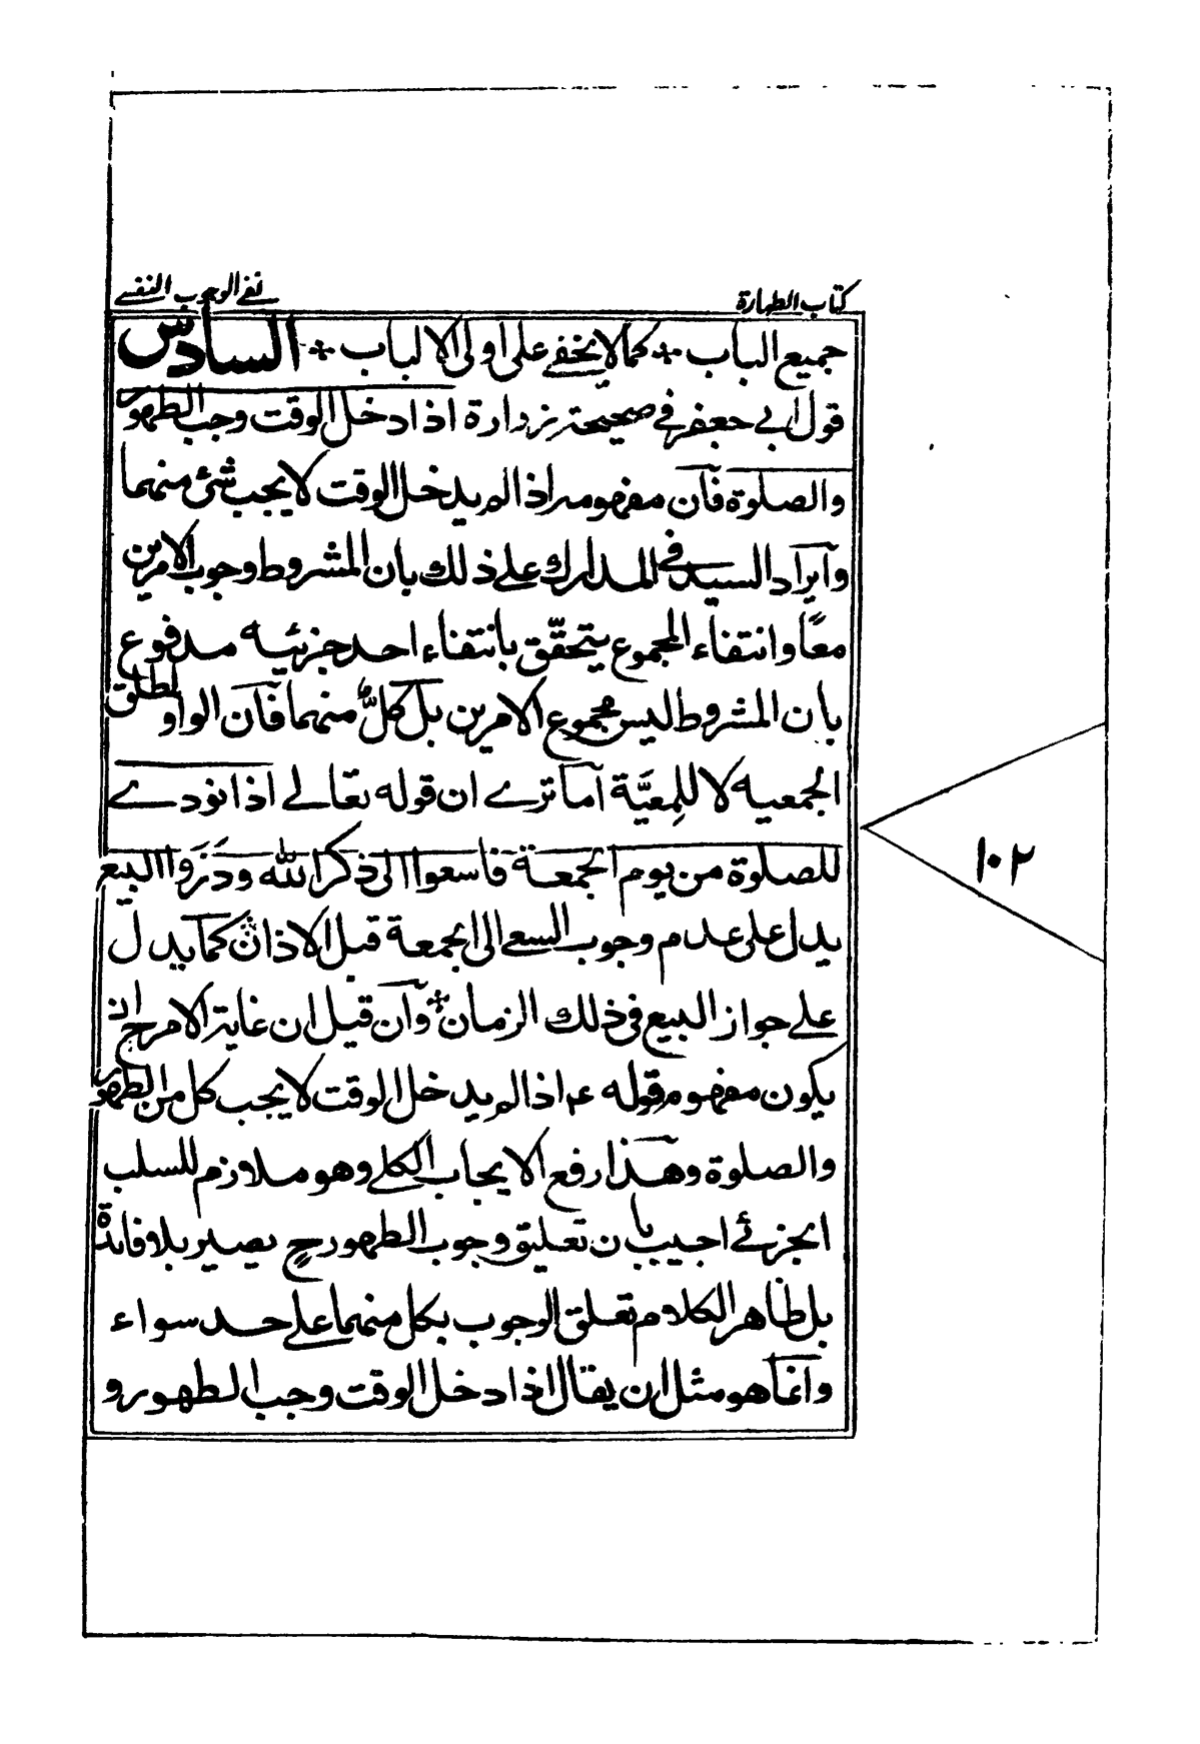 كتاب الطهارة
نفي الوجوب النفسي
جميع الباب ٭ كما لا يخفى على اولى الالباب ٭ السادس
قول ابي جعفر في صحيحة زرارة اذا دخل الوقت وجب الطهور
والصلوة فان مفهومه اذا لم يدخل الوقت لا يجب شئ منهما
وايراد السيد في المدارك على ذلك بان المشروط وجوب الامرين
معًا وانتفاء المجموع يتحقّق بانتفاء احد جزئيه مدفوع
بان المشروط ليس مجموع الامرين بل كلٌّ منهما فان الواو لمطلق
الجمعيه لا للمِعيَّة اما ترى ان قوله تعالى اذا نودي
للصلوة من يوم الجمعة فاسعوا الى ذكر الله وذَرَوا البيع
يدل على عدم وجوب السعي الى الجمعة قبل الاذان كما يدل
على جواز البيع في ذلك الزمان ٭ وان قيل ان غاية الامر ح ان
يكون مفهوم قوله ع اذا لم يدخل الوقت لا يجب كل من الطهور
والصلوة وهذا رفع الايجاب الكلى وهو ملازم للسلب
الجزئي اجيب بان تعليق وجوب الطهور ح يصير بلا فائدة
بل ظاهر الكلام تعلق الوجوب بكل منهما على حد سواء
وانما هو مثل ان يقال اذا دخل الوقت وجب الطهور و
١٠٢